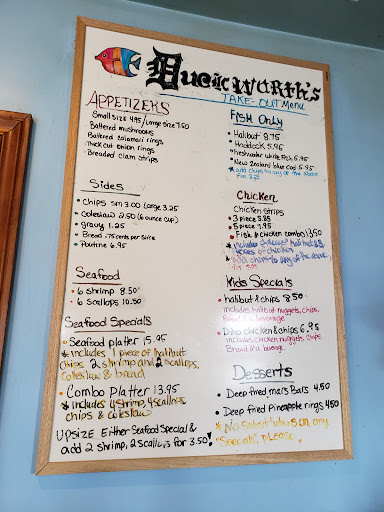 Duckworth's
TAKE-OUT Menu
APPETIZERS
Small size 4.95/Large size 7.50
Battered mushrooms
Battered calamari rings
Thick cut onion rings
• Breaded clam strips
Sides
• Chips sm 3.00 Large 3.25
• Coleslaw 2.50 (6 ounce cup)
• Gravy 1.25
• Bread .75 cents per slice
• Poutine 6.95
Seafood
• 6 shrimp 8.50
• 6 scallops 10.50
Seafood Specials
• Seafood platter 15.95
* includes 1 piece of halibut
Chips, 2 shrimp and 2 scallops,
coleslaw & bread
• Combo Platter 13.95
* includes 4 shrimp, 4 scallops
chips & coleslaw
UPSIZE Either Seafood Special &
add 2 shrimp, 2 scallops for 3.50!
FISH ONLY
• Halibut 8.75
• Haddock 5.95
• Freshwater white fish 5.95
• New Zealand blue cod 5.95
* add chips to any of the above
For 3.25
Chicken
Chicken strips
• 3 piece 5.85
• 5 piece 7.95
• Fish & chicken combo 13.50
* includes halibut & 3
pieces of chicken
chips to any of the above
Kids Specials
• halibut & chips 8.50
includes halibut nuggets, chips,
Bread & a beverage
• Dino chicken & chips 6.95
includes chicken nuggets, chips
Bread & a beverage
Desserts
• Deep fried mars Bars 4.50
• Deep fried Pineapple rings 4.50
* No Substitutions on any
"Specials", please